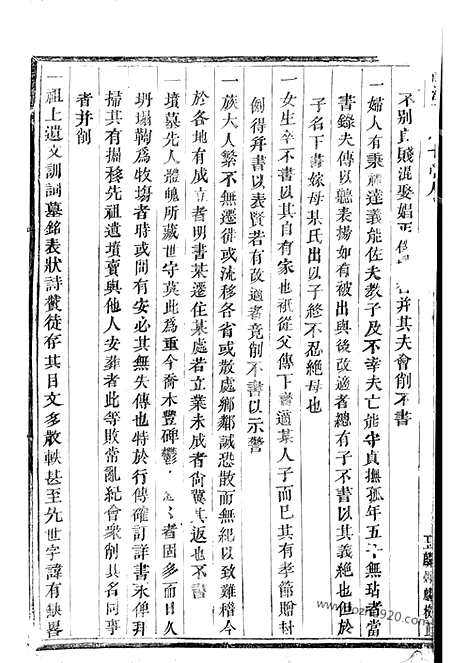 不別良賤混娶娼 并其夫會削不書
一婦人有秉禮達義能佐夫教子及不幸夫亡能守貞撫孤年五十無玷者當
書錄夫傳以聽表揚如有被出與後改適者總有子不書以其義絶也但於
子名下書嫁母某氏出以子終不忍絶母也
一女生卒不書以其自有家也祇從父傳下書適某人子而已其有孝節贈封
例得拜書以表賢若有改適者竟削不書以示警
一族大人繁不無遷徙或流移各省或散處鄉鄰誠恐散而無紀以致難稽今
於各地有成立者明書某遷住某處若立業未成者尙冀其返也不書
一墳墓先人體魄所藏世守莫此為重今喬木豐碑鬱 者固多而日久
坍塌鞠為牧場者時或間有安必其無失傳也特於行傳確訂詳書永俾拜
掃其有掘移先祖遺墳賣與他人安葬者此等敗常亂紀會衆削其名同事
者并削
一祖上遺文訓詞墓銘表狀詩贊從存其目文多散軼甚至先世字諱有缺畧